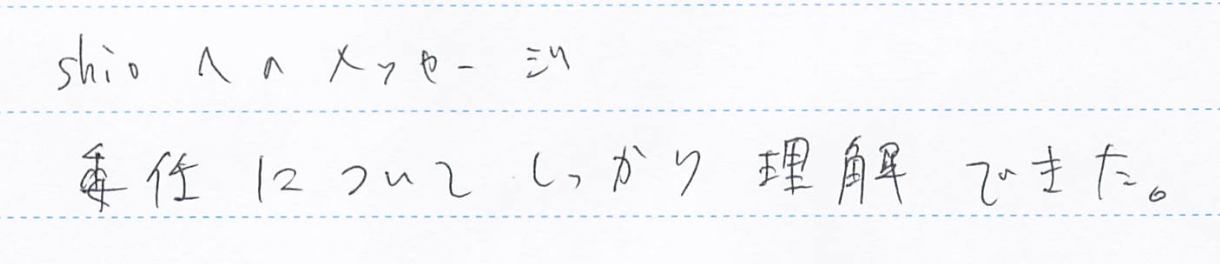 shioへのメッセージ
委任についてしっかり理解できた。